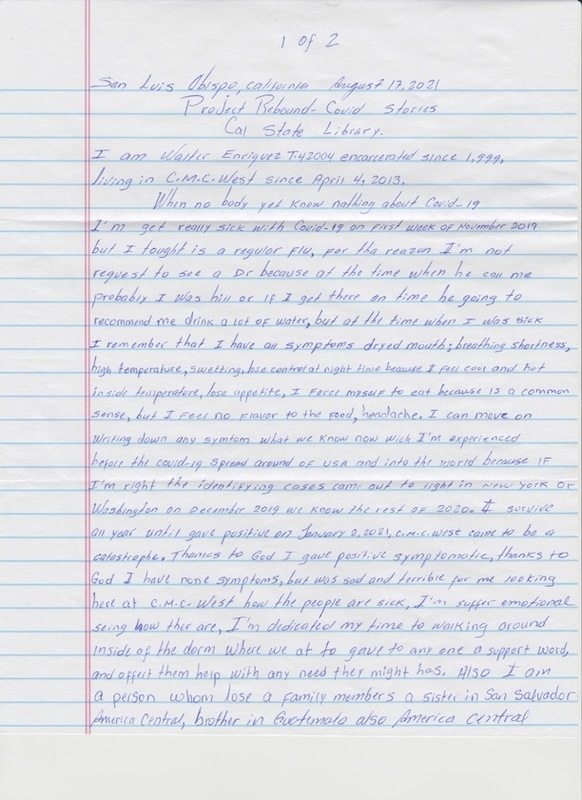 1 of 2
San Luis Obispo, California August 17, 2021
Project Rebound - Covid Stories
Cal State Library.
I am Walter Enriquez T-42004 encarcerated since 1,999,
living in C.M.C. West since April 4, 2013.
When no body yet know nathing about Covid-19
I'm get really sick with Covid-19 on first week of November 2019
but I tought is a regular flu, for tha reazon I'm not
request to see a Dr because at the time when he call me
probably I was hill or if I get there on time he going to
recommend me drink a lot of water, but at the time when I was sick
I remember that I have all symptoms dryed mouth; breathing shortness,
high temperature, swetting, lose control at night time because I feel cool and hot
inside temperature, lose appetite, I force myself to eat because is a common
sense, but I feel no flavor to the food, headache. I can move on
writing down any symtom what we know now wich I'm experienced
before the covid-19 spread around of USA and into the world because if
I'm right the identifying cases came out to light in New York or
Washington on December 2019 we know the rest of 2020. I survive
all year until gave positive on January 2, 2021, C.M.C. West came to be a
catastrophe. Thanks to God I gave positive symptomatic, thanks to
God I have none symptoms, but was sad and terrible for me looking
here at C.M.C. West how the people are sick, I'm suffer emotional
seing how ther are, I'm dedicated my time to walking around
inside of the dorm where we at to gave to any one a support word,
and offert them help with any need they might has. Also I am
a person whom lose a family members a sister in San Salvador
America Central, brother in Guatemala also America Central